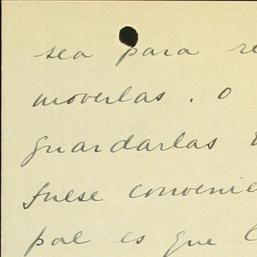 sea para re
moverlas. o
guardarlas
fuese convenie
pal es que l